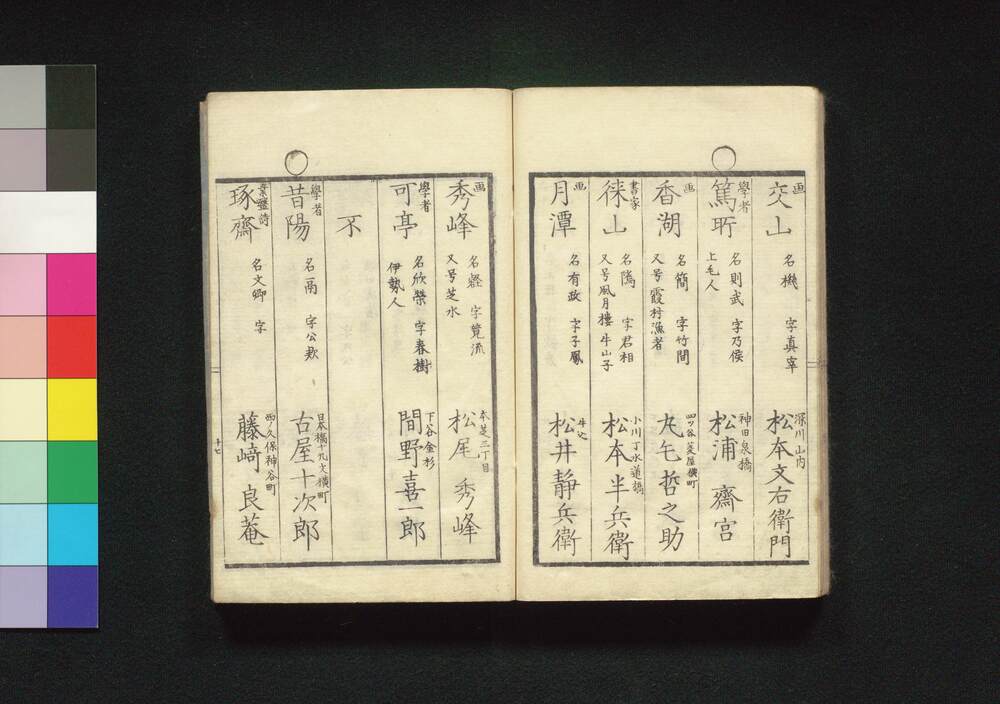 画
交山
名機 字真宰
深川山内
松本文右衛門
學者
篤所
名則武 字乃侯
上毛人
神田泉橋
松浦 齋宮
画
香湖
名簡 字竹間
又号霞村漁者
四ツ谷菱屋横町
丸毛哲之助
書家
徠山
字君相
又号風月樓 牛山子
小川丁水道橋
松本半兵衛
画
月潭
名有政 字子鳳
松井静兵衛
画
秀峰
又号芝水
本芝三丁目
松尾 秀峰
學者
可亭
名欣榮 字春樹
伊勢人
下谷金杉
間野喜一郎
不
學者
昔陽
名鬲 字公款
日本橋十九文横町
古屋十次郎
業醫詩
琢齋
名文卿 字
西ノ久保神谷町
藤﨑良菴